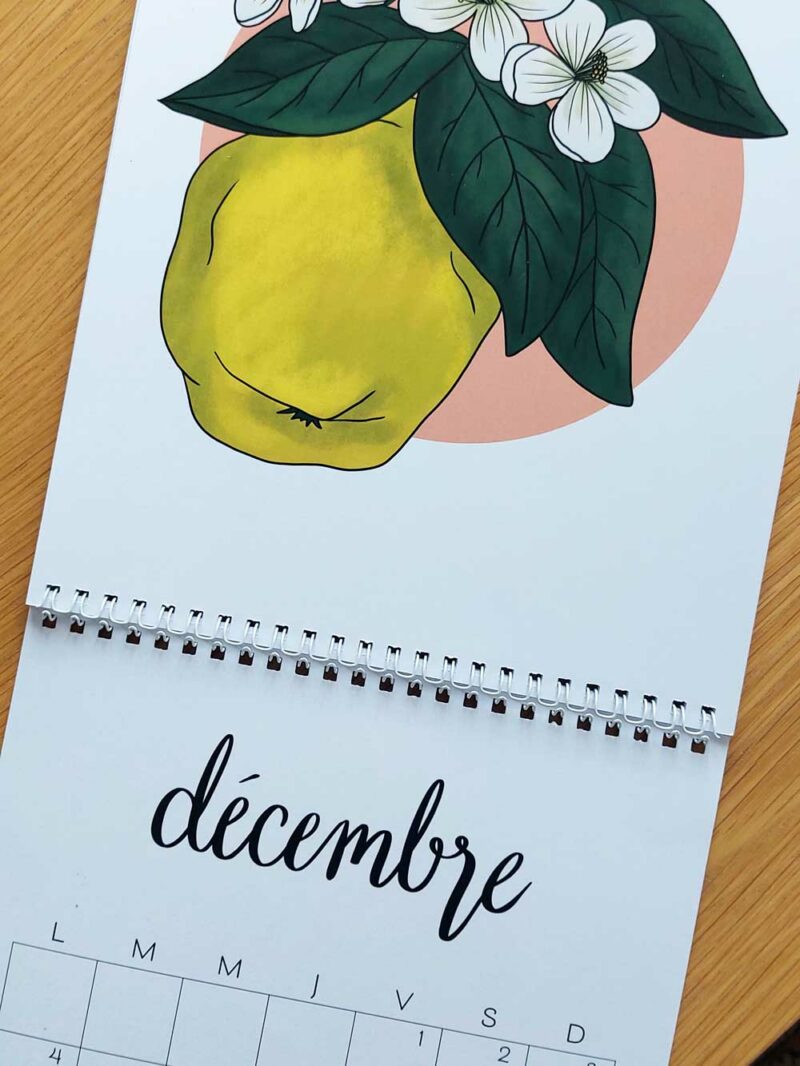 décembre
L M M J V S D
1 2 3
4